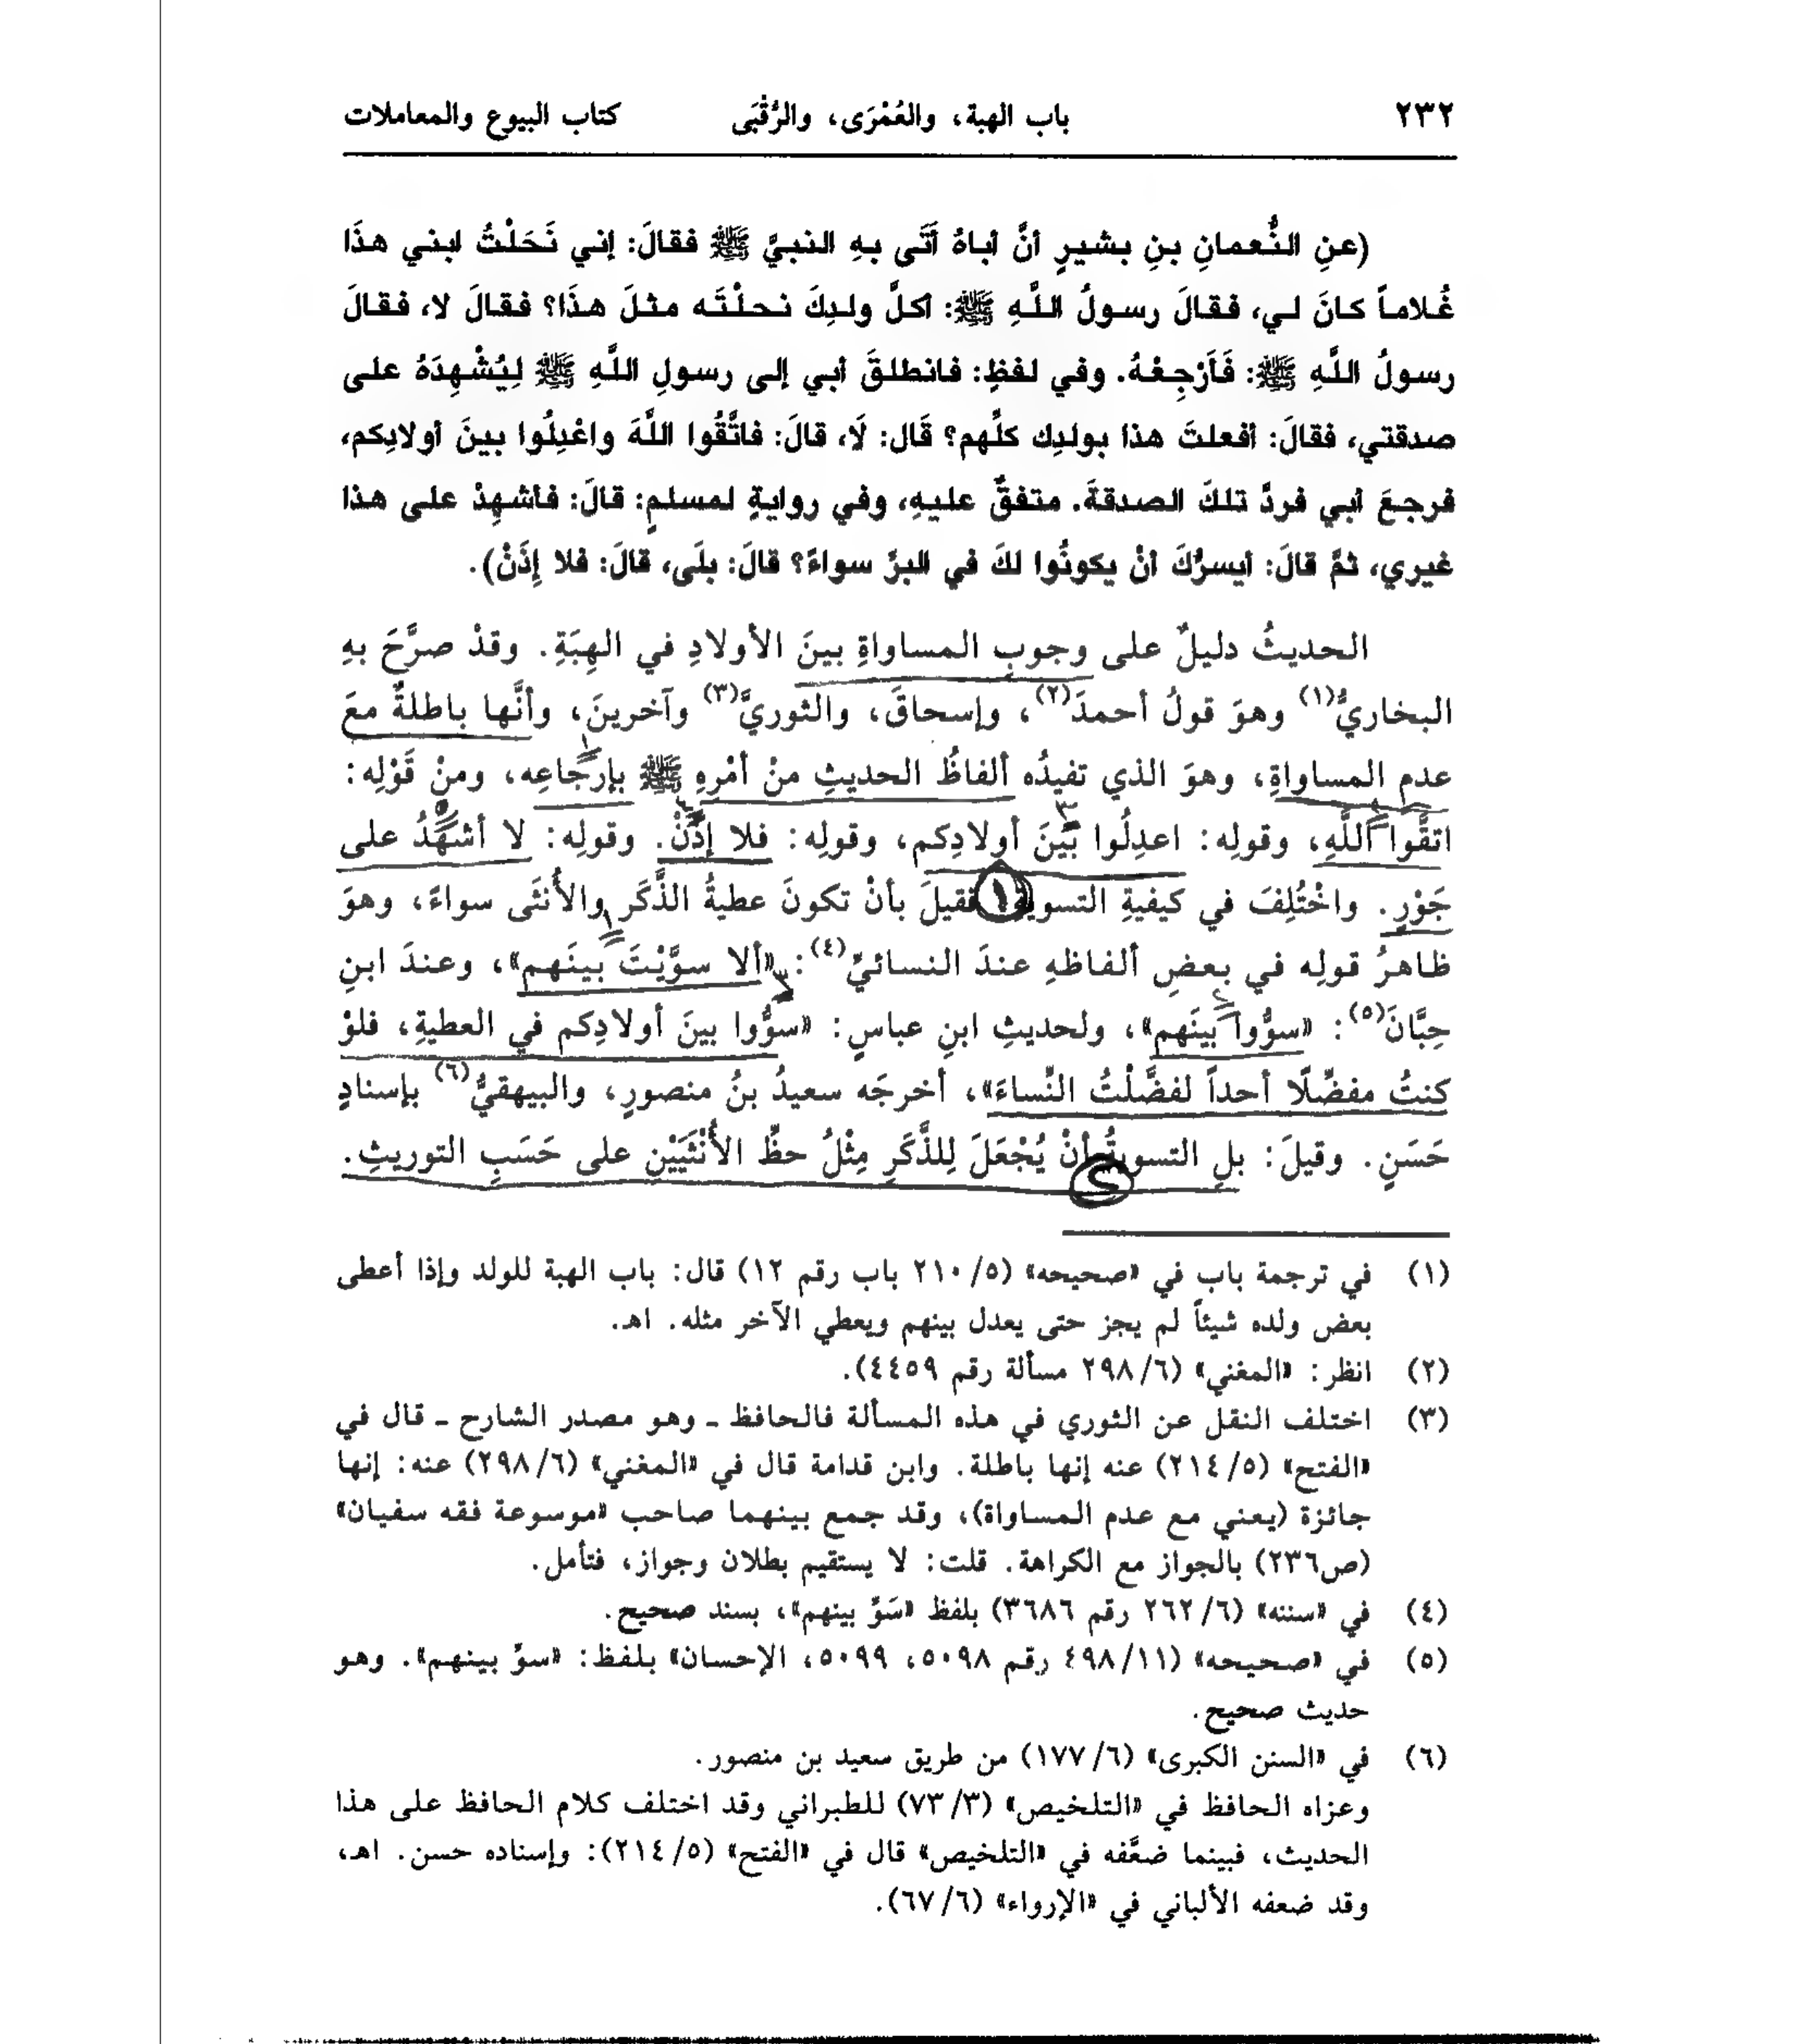 ٢٣٢ باب الهبة، والعُمْرَى، والرُّقْبَى كتاب البيوع والمعاملات
(عنِ النُّعمانِ بنِ بشيرٍ أنَّ أباهُ أَتَى بهِ النبيَّ ﷺ فقالَ: إني نَحَلْتُ ابني هذَا
غُلاماً كانَ لي، فقالَ رسولُ اللَّهِ ﷺ: أكلَّ ولدِكَ نحلْتَه مثلَ هذَا؟ فقالَ لا، فقالَ
رسولُ اللَّهِ ﷺ: فَأَرْجِعْهُ. وفي لفظٍ: فانطلقَ أبي إلى رسولِ اللَّهِ ﷺ لِيُشْهِدَهُ على
صدقتي، فقالَ: أفعلتَ هذا بولدِك كلِّهم؟ قَال: لَا، قالَ: فاتَّقُوا اللَّهَ واعْدِلُوا بينَ أولادِكم،
فرجعَ أبي فردَّ تلكَ الصدقةَ. متفقٌ عليهِ، وفي روايةٍ لمسلمٍ: قالَ: فأشهِدْ على هذا
غيري، ثمَّ قالَ: أيسرُّكَ أنْ يكونُوا لكَ في البرِّ سواءً؟ قالَ: بلَى، قالَ: فلا إِذَنْ).
الحديثُ دليلٌ على وجوبِ المساواةِ بينَ الأولادِ في الهِبَةِ. وقدْ صرَّحَ بهِ
البخاريُّ(١) وهوَ قولُ أحمدَ(٢)، وإسحاقَ، والثوريَّ(٣) وآخرينَ، وأنَّها باطلةٌ معَ
عدمِ المساواةِ، وهوَ الذي تفيدُه ألفاظُ الحديثِ منْ أمْرِهِ ﷺ بإرجَاعِه، ومنْ قَوْلِه:
اتقُوا اللَّهِ، وقولِه: اعدِلُوا بَيْنَ أولادِكم، وقولِه: فلا إذَنْ. وقولِه: لا أشهَدُ على
جَوْرٍ. واخْتُلِفَ في كيفيةِ التسويةِ ١ فقيلَ بأنْ تكونَ عطيةُ الذَّكَرِ والأُنثَى سواءً، وهوَ
ظاهرُ قولِه في بعضِ ألفاظهِ عندَ النسائيِّ(٤): «ألا سوَّيْتَ بينَهم»، وعندَ ابنِ
حِبَّانَ(٥): «سوُّوا بينَهم»، ولحديثِ ابنِ عباسٍ: «سوُّوا بينَ أولادِكم في العطيةِ، فلوْ
كنتُ مفضِّلًا أحداً لفضَّلْتُ النِّساءَ»، أخرجَه سعيدُ بنُ منصورٍ، والبيهقيُّ(٦) بإسنادٍ
حَسَنٍ. وقيلَ: بلِ التسويةُ أنْ يُجْعَلَ لِلذَّكَرِ مِثْلُ حظِّ الأُنْثَيَيْنِ على حَسَبِ التوريثِ.
(١) في ترجمة باب في «صحيحه» (٥/ ٢١٠ باب رقم ١٢) قال: باب الهبة للولد وإذا أعطى
بعض ولده شيئاً لم يجز حتى يعدل بينهم ويعطي الآخر مثله. اهـ.
(٢) انظر: «المغني» (٦/ ٢٩٨ مسألة رقم ٤٤٥٩).
(٣) اختلف النقل عن الثوري في هذه المسألة فالحافظ ـ وهو مصدر الشارح ـ قال في
«الفتح» (٥/ ٢١٤) عنه إنها باطلة. وابن قدامة قال في «المغني» (٦/ ٢٩٨) عنه: إنها
جائزة (يعني مع عدم المساواة)، وقد جمع بينهما صاحب «موسوعة فقه سفيان»
(ص٢٣٦) بالجواز مع الكراهة. قلت: لا يستقيم بطلان وجواز، فتأمل.
(٤) في «سننه» (٦/ ٢٦٢ رقم ٣٦٨٦) بلفظ «سَوِّ بينهم»، بسند صحيح.
(٥) في «صحيحه» (١١/ ٤٩٨ رقم ٥٠٩٨، ٥٠٩٩، الإحسان) بلفظ: «سوِّ بينهم». وهو
حديث صحيح.
(٦) في «السنن الكبرى» (٦/ ١٧٧) من طريق سعيد بن منصور.
وعزاه الحافظ في «التلخيص» (٣/ ٧٣) للطبراني وقد اختلف كلام الحافظ على هذا
الحديث، فبينما ضعَّفه في «التلخيص» قال في «الفتح» (٥/ ٢١٤): وإسناده حسن. اهـ،
وقد ضعفه الألباني في «الإرواء» (٦/ ٦٧).